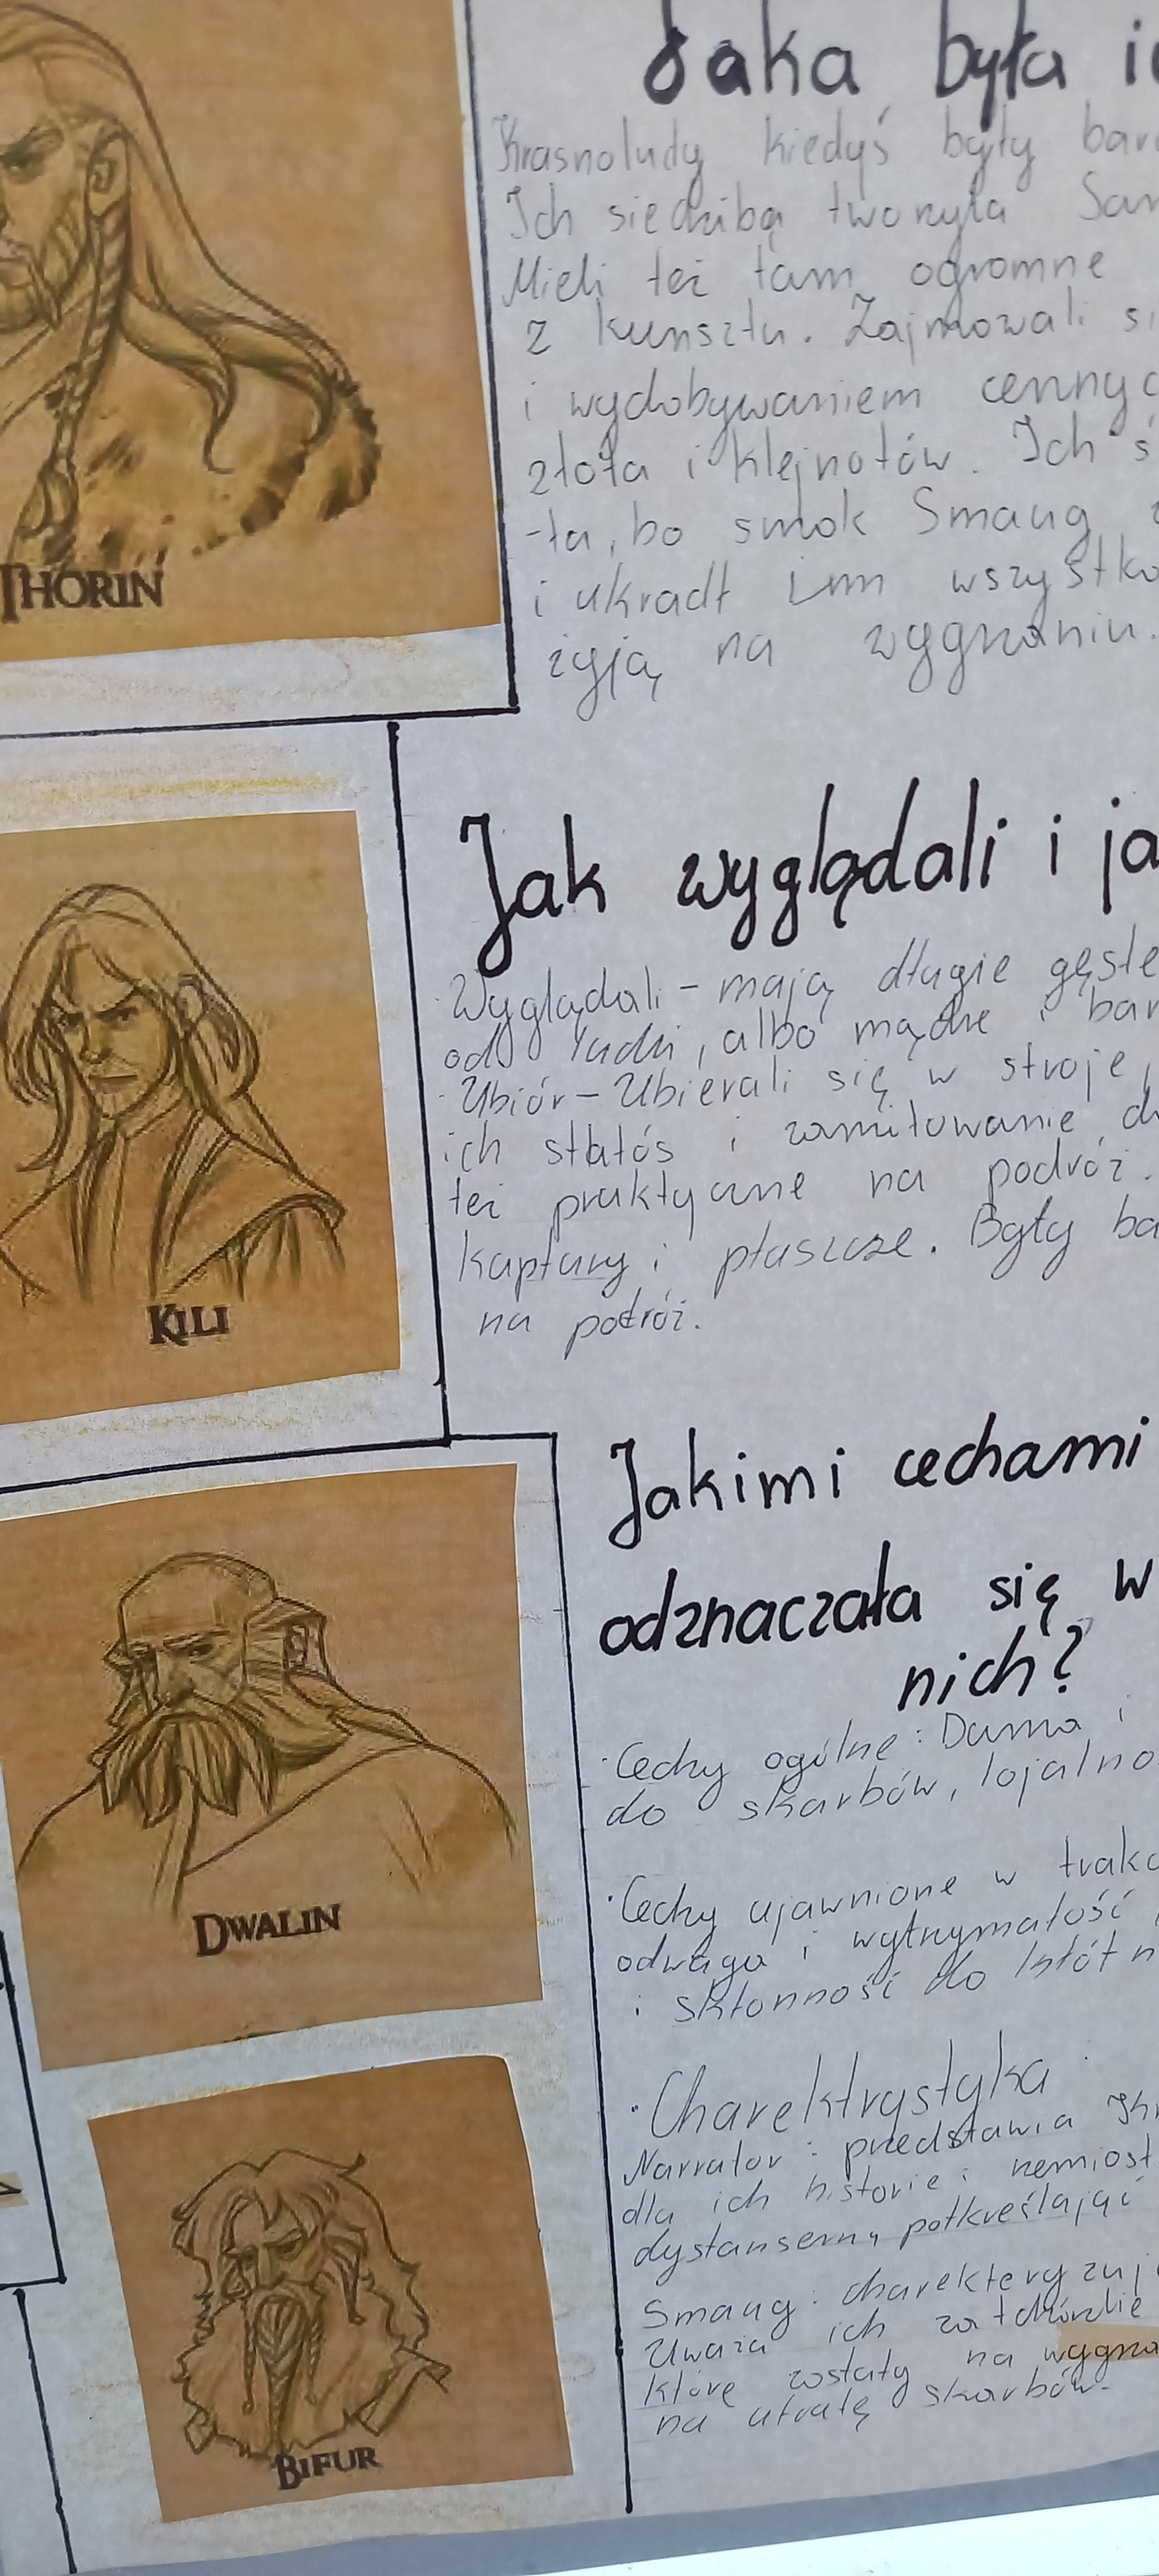 Jaka była i
Krasnoludy kiedyś były bar
Ich siedzibą tworzyła Sam
Mieli też tam ogromne
z kunsztu. Zajmowali si
i wydobywaniem cennyc
złota i klejnotów. Ich ś
-ła, bo smok Smaug z
i ukradł im wszystko
żyją na wygnaniu.
THORIN
Jak wyglądali i ja
· Wyglądali - mają długie gęste
od ludzi, albo mądre i bar
· Ubiór - Ubierali się w stroje,
ich statós i zamiłowanie d
też praktyczne na podróż.
kaptury i płaszcze. Były ba
na podróż.
KILI
Jakimi cechami
odznaczała się w
nich?
· Cechy ogólne: Duma i
do skarbów, lojalno
· Cechy ujawnione w trakc
odwaga i wytrzymałość
i skłonność do kłótn
DWALIN
· Charektrystyka
Narrator: przedstawia
dla ich historie i rzemiosł
dystansem, potkreślająć
Smaug: charekteryzuj
Uważa ich za tchórzliwe
które zostały na wygna
na utratę skarbów.
BIFUR